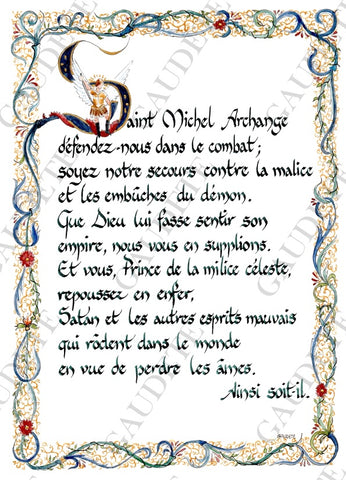 Saint Michel Archange
défendez-nous dans le combat;
soyez notre secours contre la malice
et les embûches du démon.
Que Dieu lui fasse sentir son
empire, nous vous en supplions.
Et vous, Prince de la milice céleste,
repoussez en enfer,
Satan et les autres esprits mauvais
qui rôdent dans le monde
en vue de perdre les âmes.
Ainsi soit-il.
GAUDETE